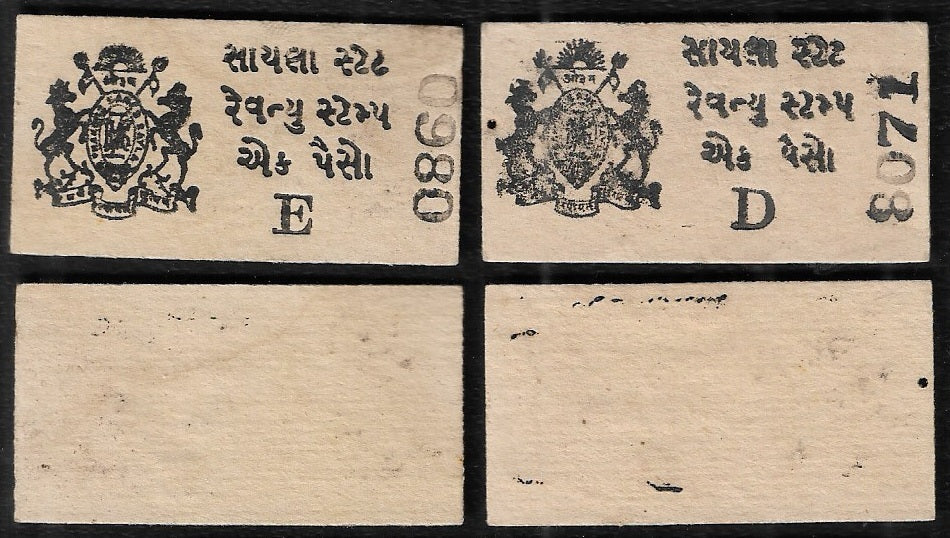 સાયલા સ્ટેટ
રેવન્યુ સ્ટમ્પ
એક પૈસો
E
0860
ओ३म
સાયલા સ્ટેટ
રેવન્યુ સ્ટમ્પ
એક પૈસો
D
8071